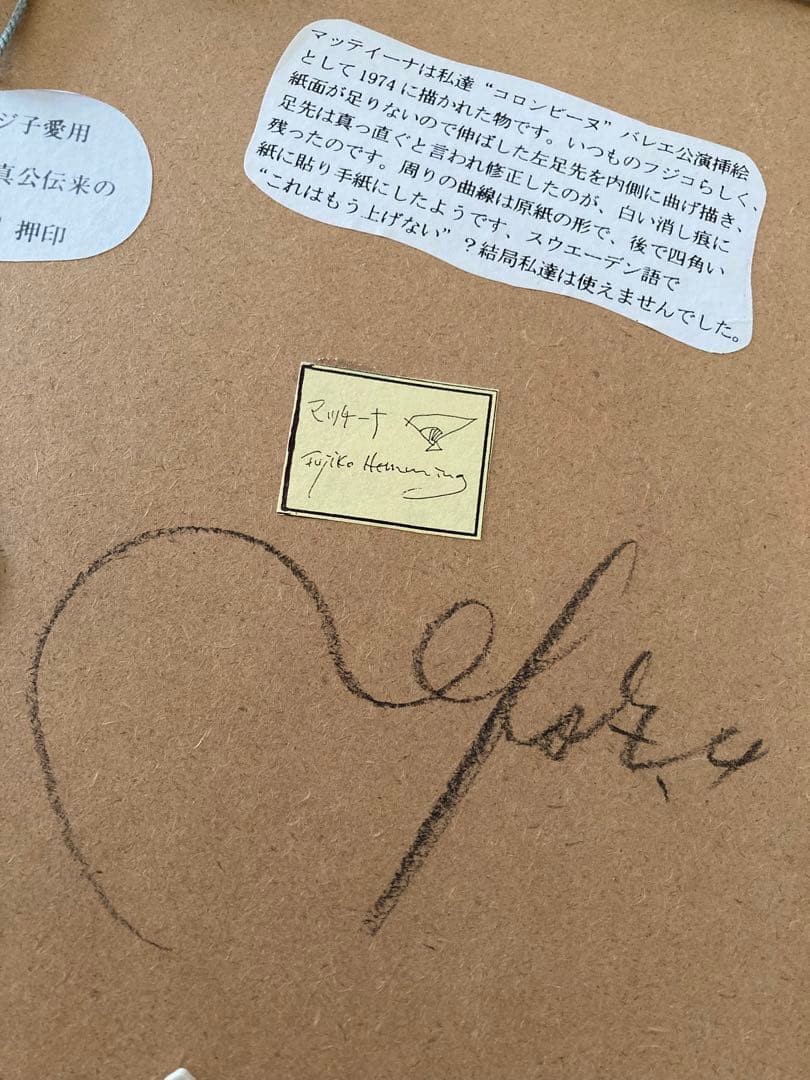 ジ子愛用
真公伝来の
押印
マッテイーナは私達“コロンビーヌ”バレエ公演挿絵
として1974に描かれた物です。いつものフジコらしく、
紙面が足りないので伸ばした左足先を内側に曲げ描き、
足先は真っ直ぐと言われ修正したのが、白い消し痕に
残ったのです。周りの曲線は原紙の形で、後で四角い
紙に貼り手紙にしたようです、スウエーデン語で
“これはもう上げない”？結局私達は使えませんでした。
マッチーナ
Fujiko Hemming